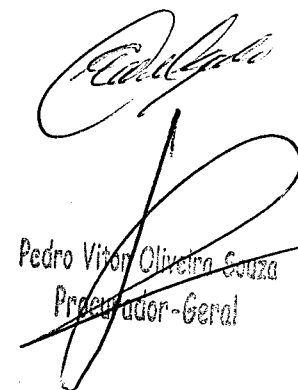 Pedro Vitor Oliveira Souza
Procurador-Geral